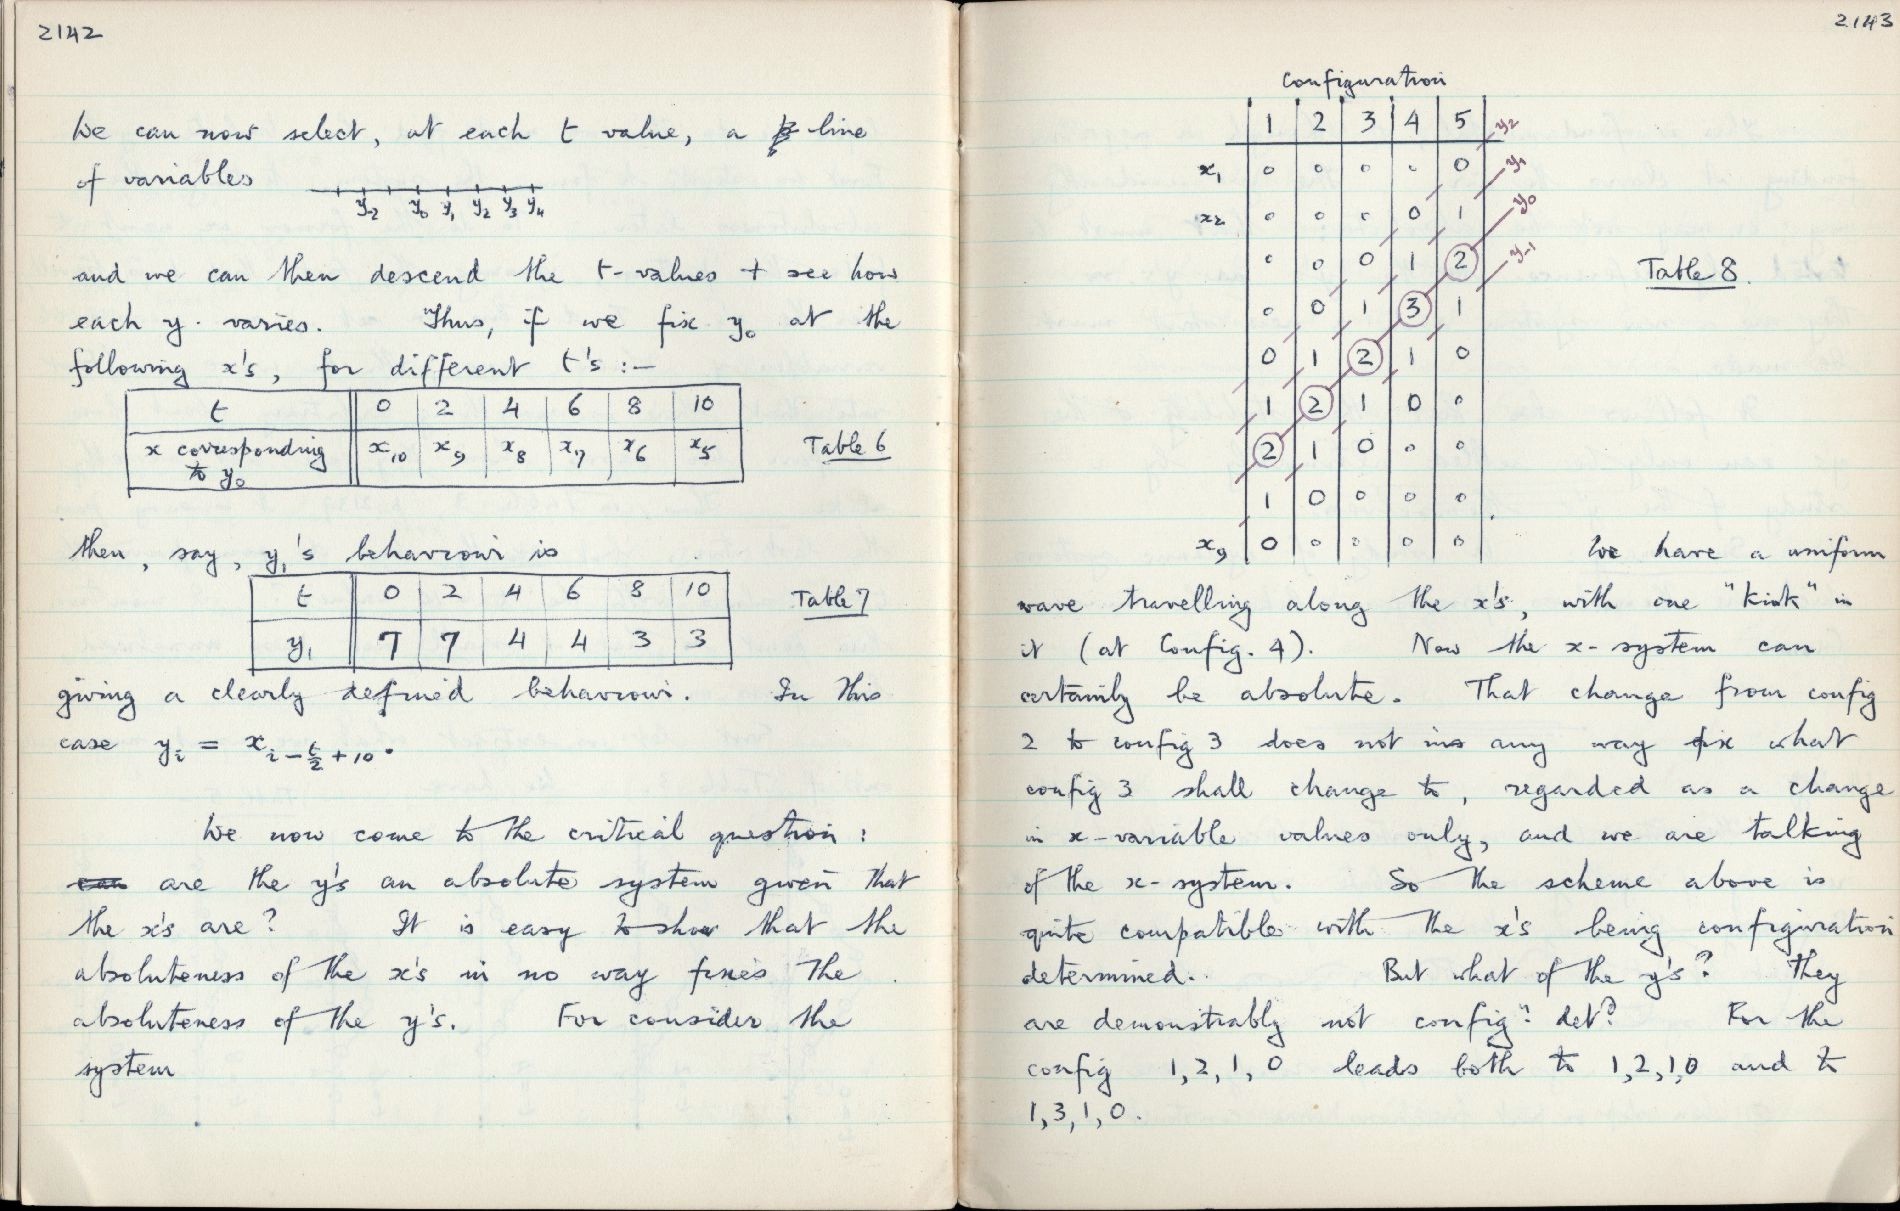 2142
We can now select, at each t value, a line
of variables
y-2 y0 y1 y2 y3 y4
and we can then descend the t-values + see how
each y. varies. Thus, if we fix y0 at the
following x's, for different t's :-
t 0 2 4 6 8 10
x corresponding to y0 x10 x9 x8 x7 x6 x5
Table 6
then, say, y1's behaviour is
t 0 2 4 6 8 10
y1 7 7 4 4 3 3
Table 7
giving a clearly defined behaviour. In this
case yi = x i - t/2 + 10.
We now come to the critical question:
are the y's an absolute system given that
the x's are? It is easy to show that the
absoluteness of the x's in no way fixes the
absoluteness of the y's. For consider the
system
2143
Configuration
1 2 3 4 5 y2
x1 0 0 0 0 0 y1
x2 0 0 0 0 1 y0
0 0 0 1 2 y-1
0 0 1 3 1
0 1 2 1 0
1 2 1 0 0
2 1 0 0 0
1 0 0 0 0
x9 0 0 0 0 0
Table 8.
We have a uniform
wave travelling along the x's, with one "kink" in
it (at Config. 4). Now the x-system can
certainly be absolute. That change from config
2 to config 3 does not in any way fix what
config 3 shall change to, regarded as a change
in x-variable values only, and we are talking
of the x-system. So the scheme above is
quite compatible with the x's being configuration
determined. But what of the y's? They
are demonstrably not config? det? For the
config 1,2,1,0 leads both to 1,2,1,0 and to
1,3,1,0.